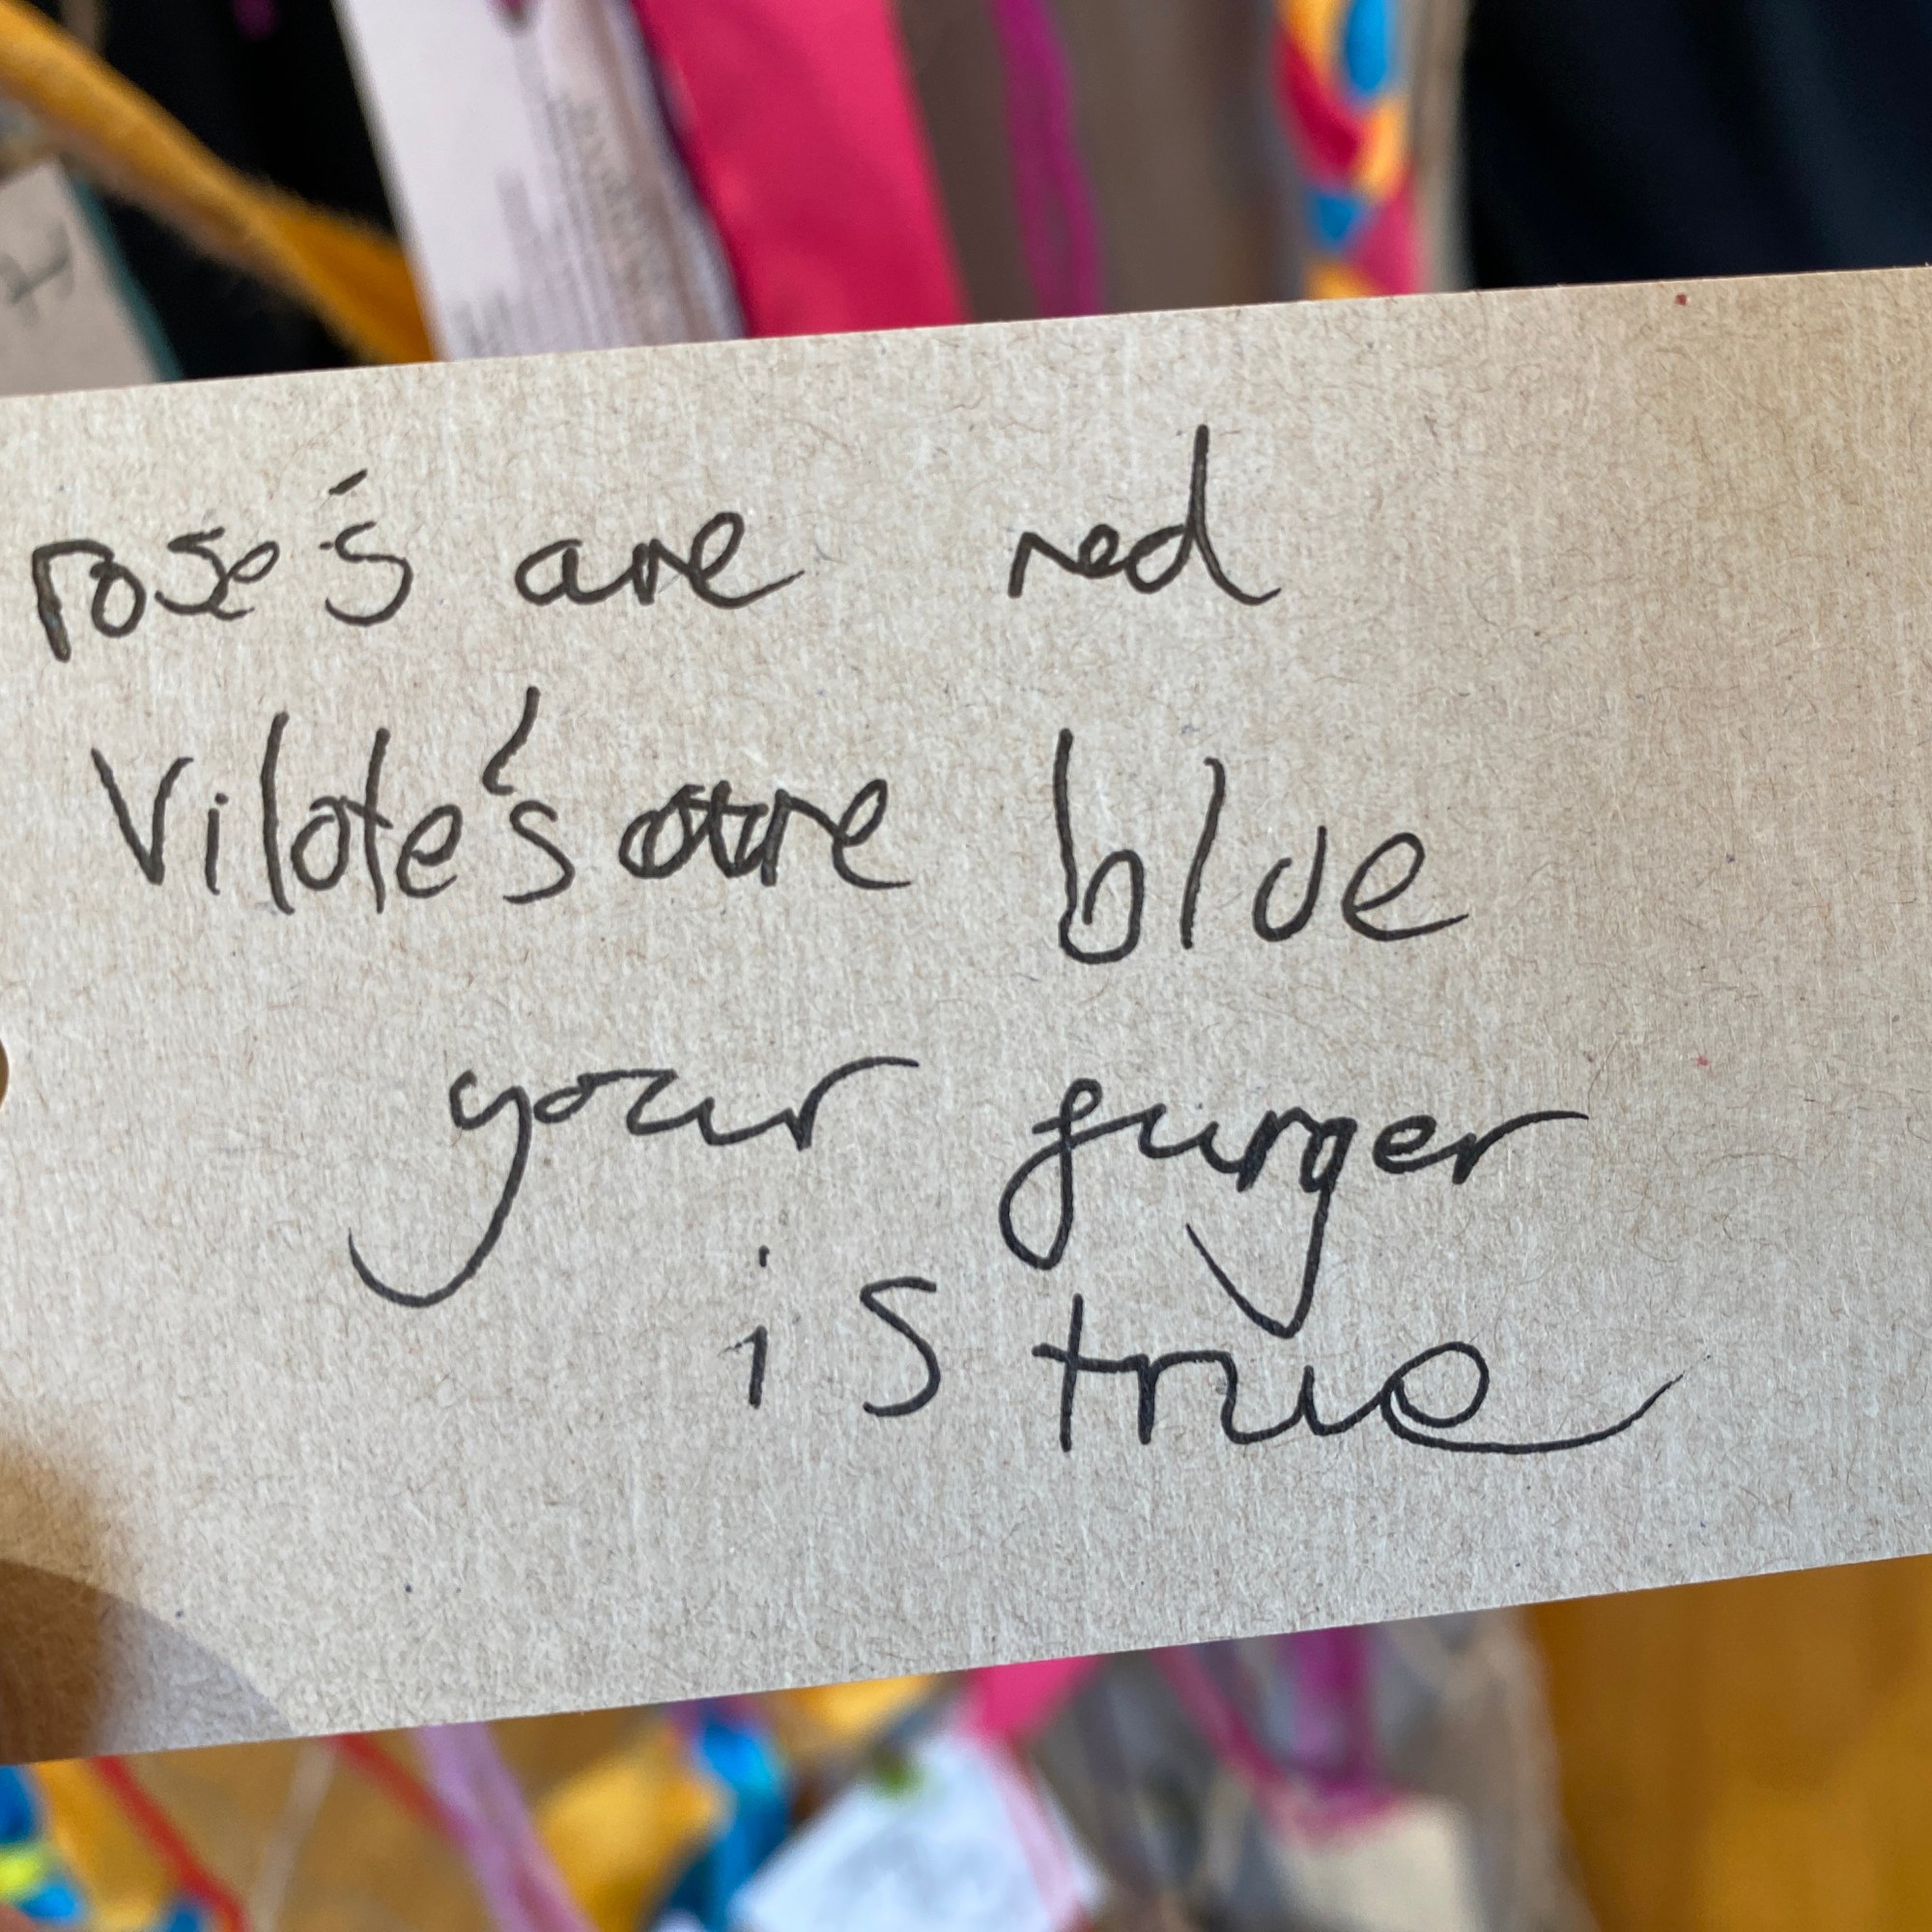 rose's are red
Vilote's are blue
your furger
is true